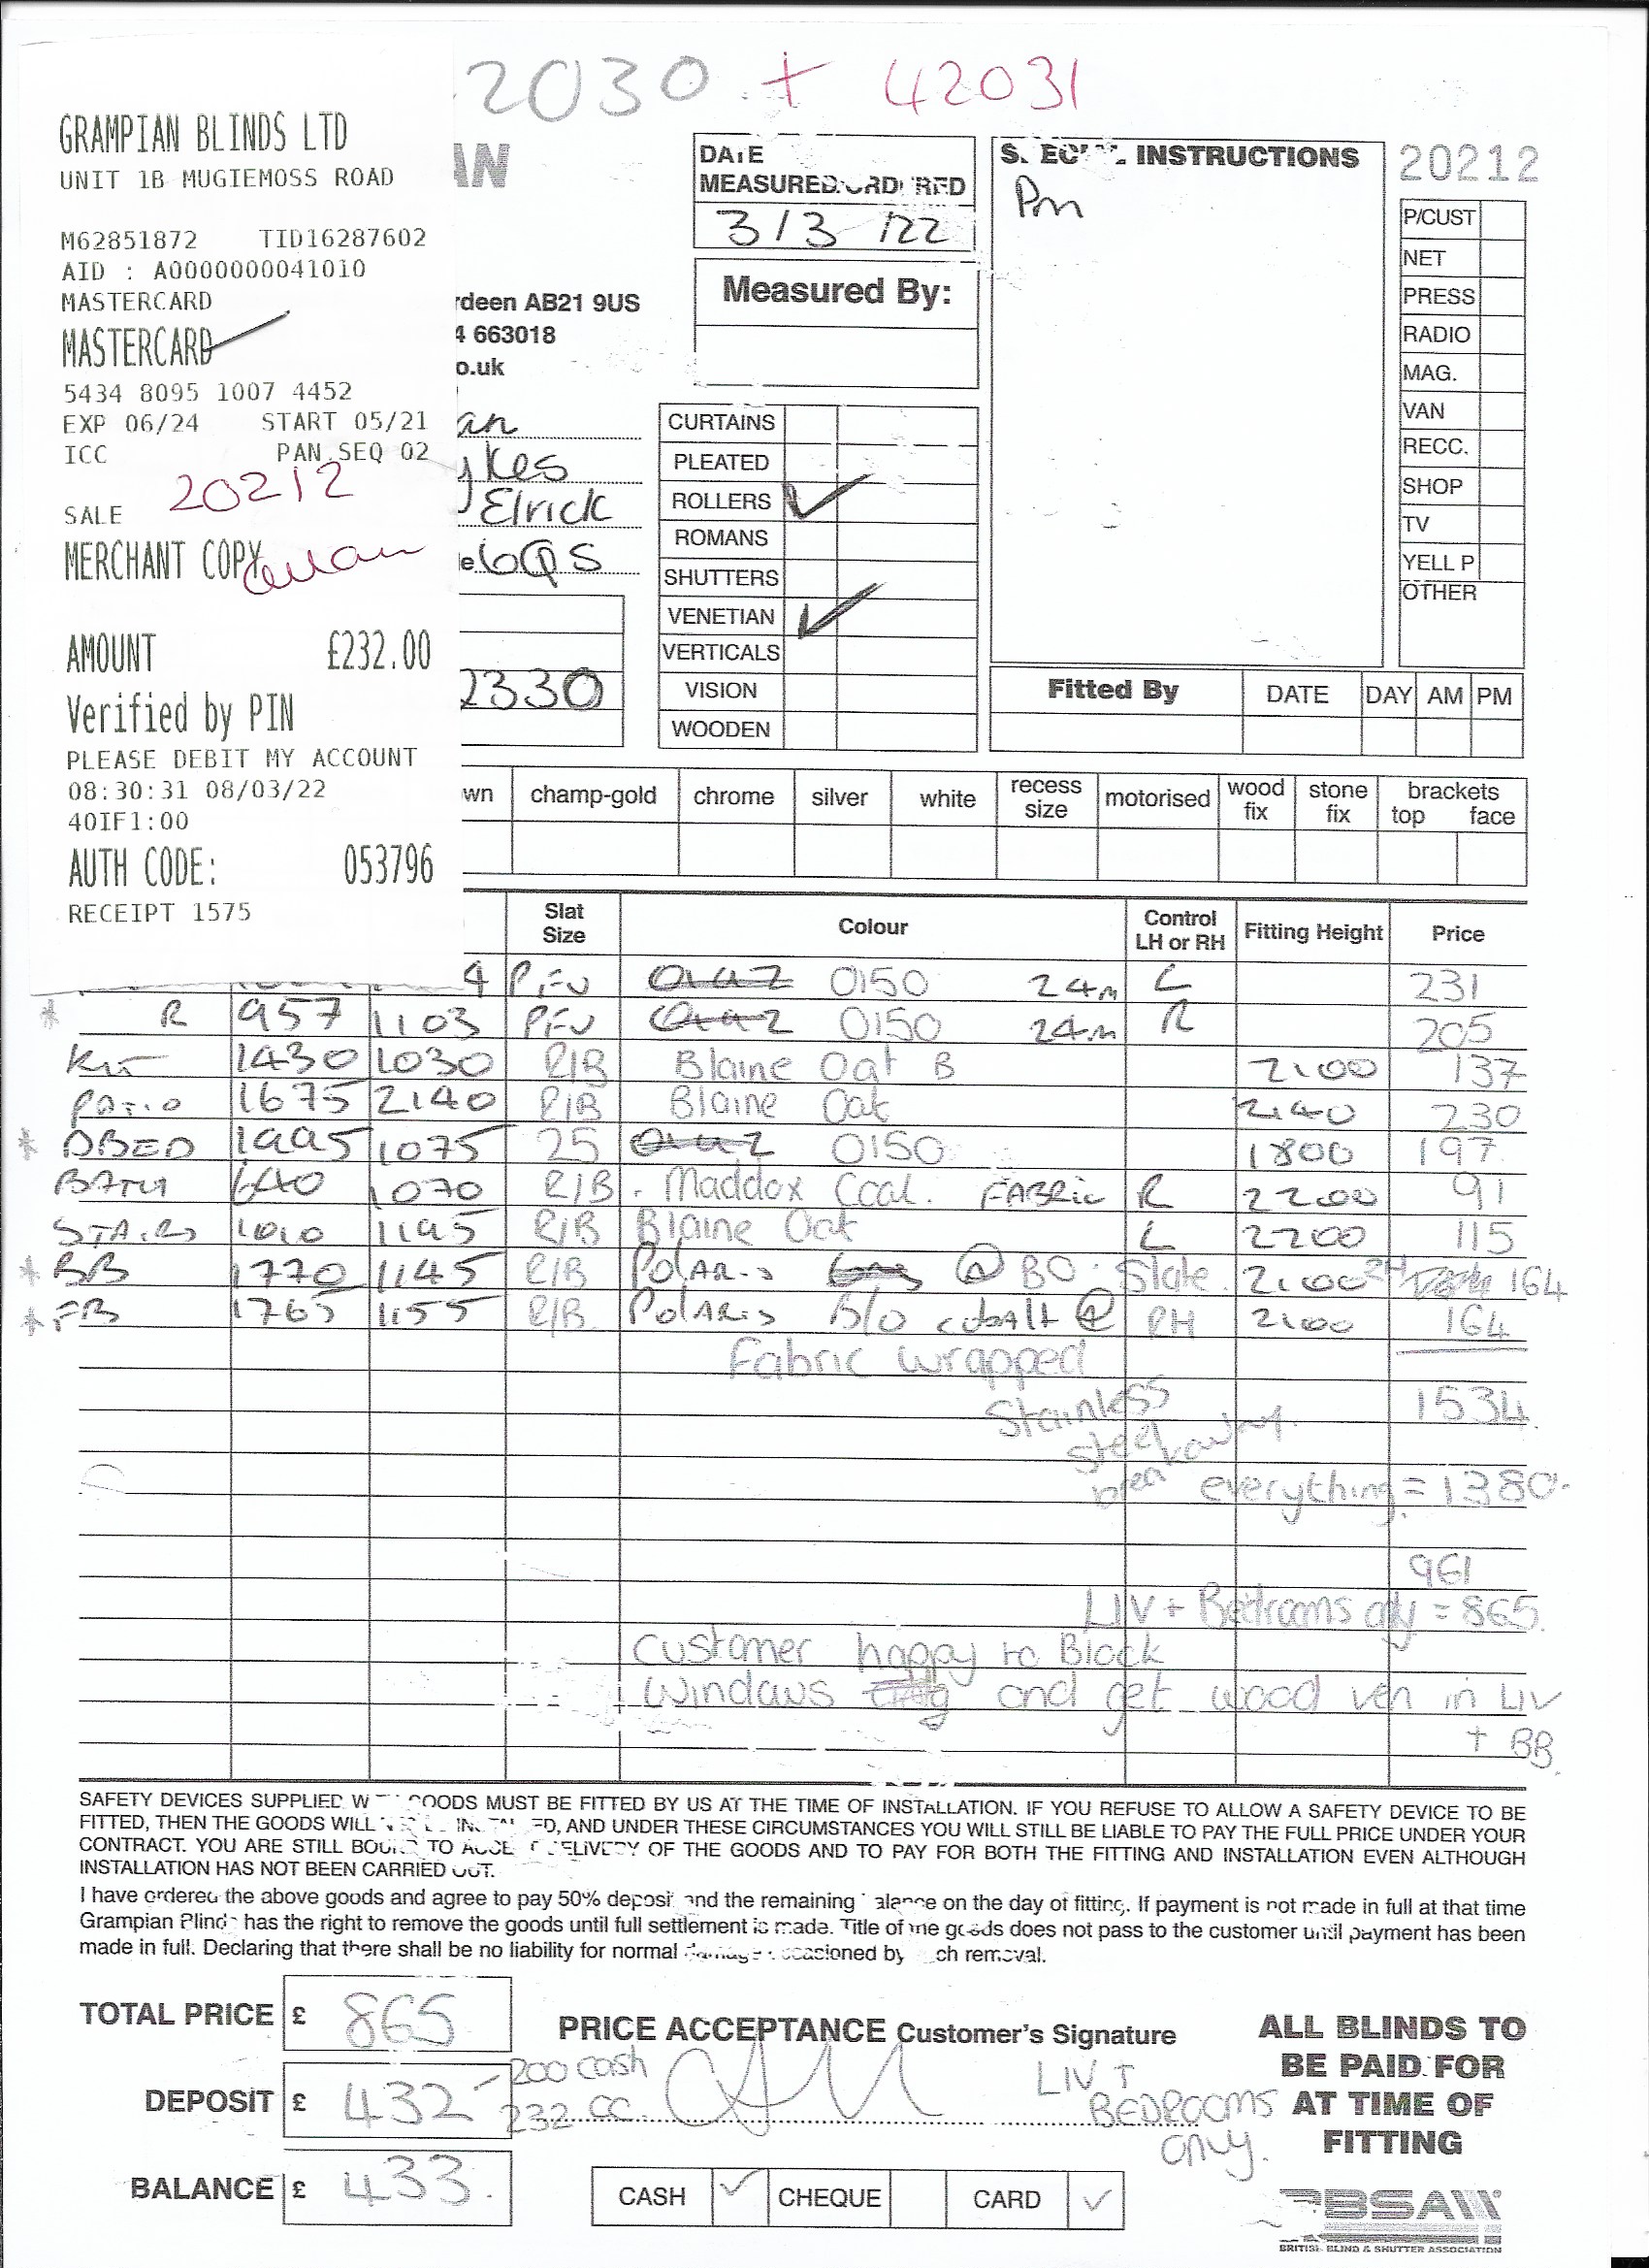 2030 + 42031
GRAMPIAN BLINDS LTD
UNIT 1B MUGIEMOSS ROAD
M62851872 TID16287602
AID : A0000000041010
MASTERCARD
MASTERCARD
5434 8095 1007 4452
EXP 06/24 START 05/21
ICC PAN SEQ 02
20212
SALE
MERCHANT COPY
AMOUNT £232.00
Verified by PIN
PLEASE DEBIT MY ACCOUNT
08:30:31 08/03/22
40IF1:00
AUTH CODE: 053796
RECEIPT 1575
AW
rdeen AB21 9US
4 663018
o.uk
an
ykes
Elrick
e 6QS
2330
DATE
MEASURED/ORDERED
3/3/22
Measured By:
CURTAINS
PLEATED
ROLLERS ✓
ROMANS
SHUTTERS
VENETIAN ✓
VERTICALS
VISION
WOODEN
SPECIAL INSTRUCTIONS
Pm
20212
P/CUST
NET
PRESS
RADIO
MAG.
VAN
RECC.
SHOP
TV
YELL P
OTHER
Fitted By DATE DAY AM PM
wn champ-gold chrome silver white recess size motorised wood fix stone fix brackets top face
Slat Size Colour Control LH or RH Fitting Height Price
4 PFV 0150 24m L 231
* R 957 1103 PFV 0150 24m R 205
Kit 1430 1030 R/B Blaine Oat B 2100 137
Patio 1675 2140 R/B Blaine Oat 2140 230
* DBED 1995 1075 25 0150 1800 197
BATH 640 1070 R/B. Maddox Coal. FABRIC R 2200 91
STAIRS 1010 1195 R/B Blaine Oat L 2200 115
* BB 1770 1145 R/B Polaris @ BO. Slate. 2100 164
* FB 1765 1155 R/B Polaris B/O cobalt @ RH 2100 164
Fabric wrapped
1534
Stainless
steel
break
everything = 1380.
961
LIV + Bedrooms only = 865.
Customer happy to Block
Windows and get wood ven in LIV
+ BB
SAFETY DEVICES SUPPLIED WITH GOODS MUST BE FITTED BY US AT THE TIME OF INSTALLATION. IF YOU REFUSE TO ALLOW A SAFETY DEVICE TO BE
FITTED, THEN THE GOODS WILL NOT BE INSTALLED, AND UNDER THESE CIRCUMSTANCES YOU WILL STILL BE LIABLE TO PAY THE FULL PRICE UNDER YOUR
CONTRACT. YOU ARE STILL BOUND TO ACCEPT DELIVERY OF THE GOODS AND TO PAY FOR BOTH THE FITTING AND INSTALLATION EVEN ALTHOUGH
INSTALLATION HAS NOT BEEN CARRIED OUT.
I have ordered the above goods and agree to pay 50% deposit and the remaining balance on the day of fitting. If payment is not made in full at that time
Grampian Blinds has the right to remove the goods until full settlement is made. Title of the goods does not pass to the customer until payment has been
made in full. Declaring that there shall be no liability for normal damage occasioned by such removal.
TOTAL PRICE £ 865
PRICE ACCEPTANCE Customer's Signature
DEPOSIT £ 432
200 cash
232 CC
LIV +
BEDROOMS
only.
BALANCE £ 433.
CASH ✓ CHEQUE CARD ✓
ALL BLINDS TO
BE PAID FOR
AT TIME OF
FITTING
BBSA
BRITISH BLIND & SHUTTER ASSOCIATION